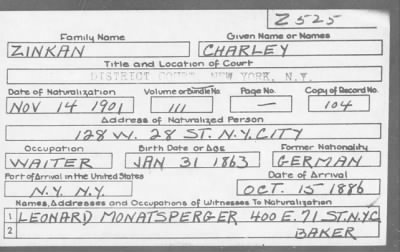 Z 525
Family Name Given Name or Names
ZINKAN CHARLEY
Title and Location of Court
DISTRICT COURT, NEW YORK, N.Y.
Date of Naturalization Volume or Bundle No. Page No. Copy of Record No.
NOV 14 1901 111 — 104
Address of Naturalized Person
128 W. 28 ST. N.Y. CITY
Occupation Birth Date or Age Former Nationality
WAITER JAN 31 1863 GERMAN
Port of Arrival in the United States Date of Arrival
N.Y. N.Y. OCT. 15 1886
Names, Addresses and Occupations of Witnesses To Naturalization
1 LEONARD MONATSPERGER 400 E. 71 ST. N.Y.C.
2 BAKER